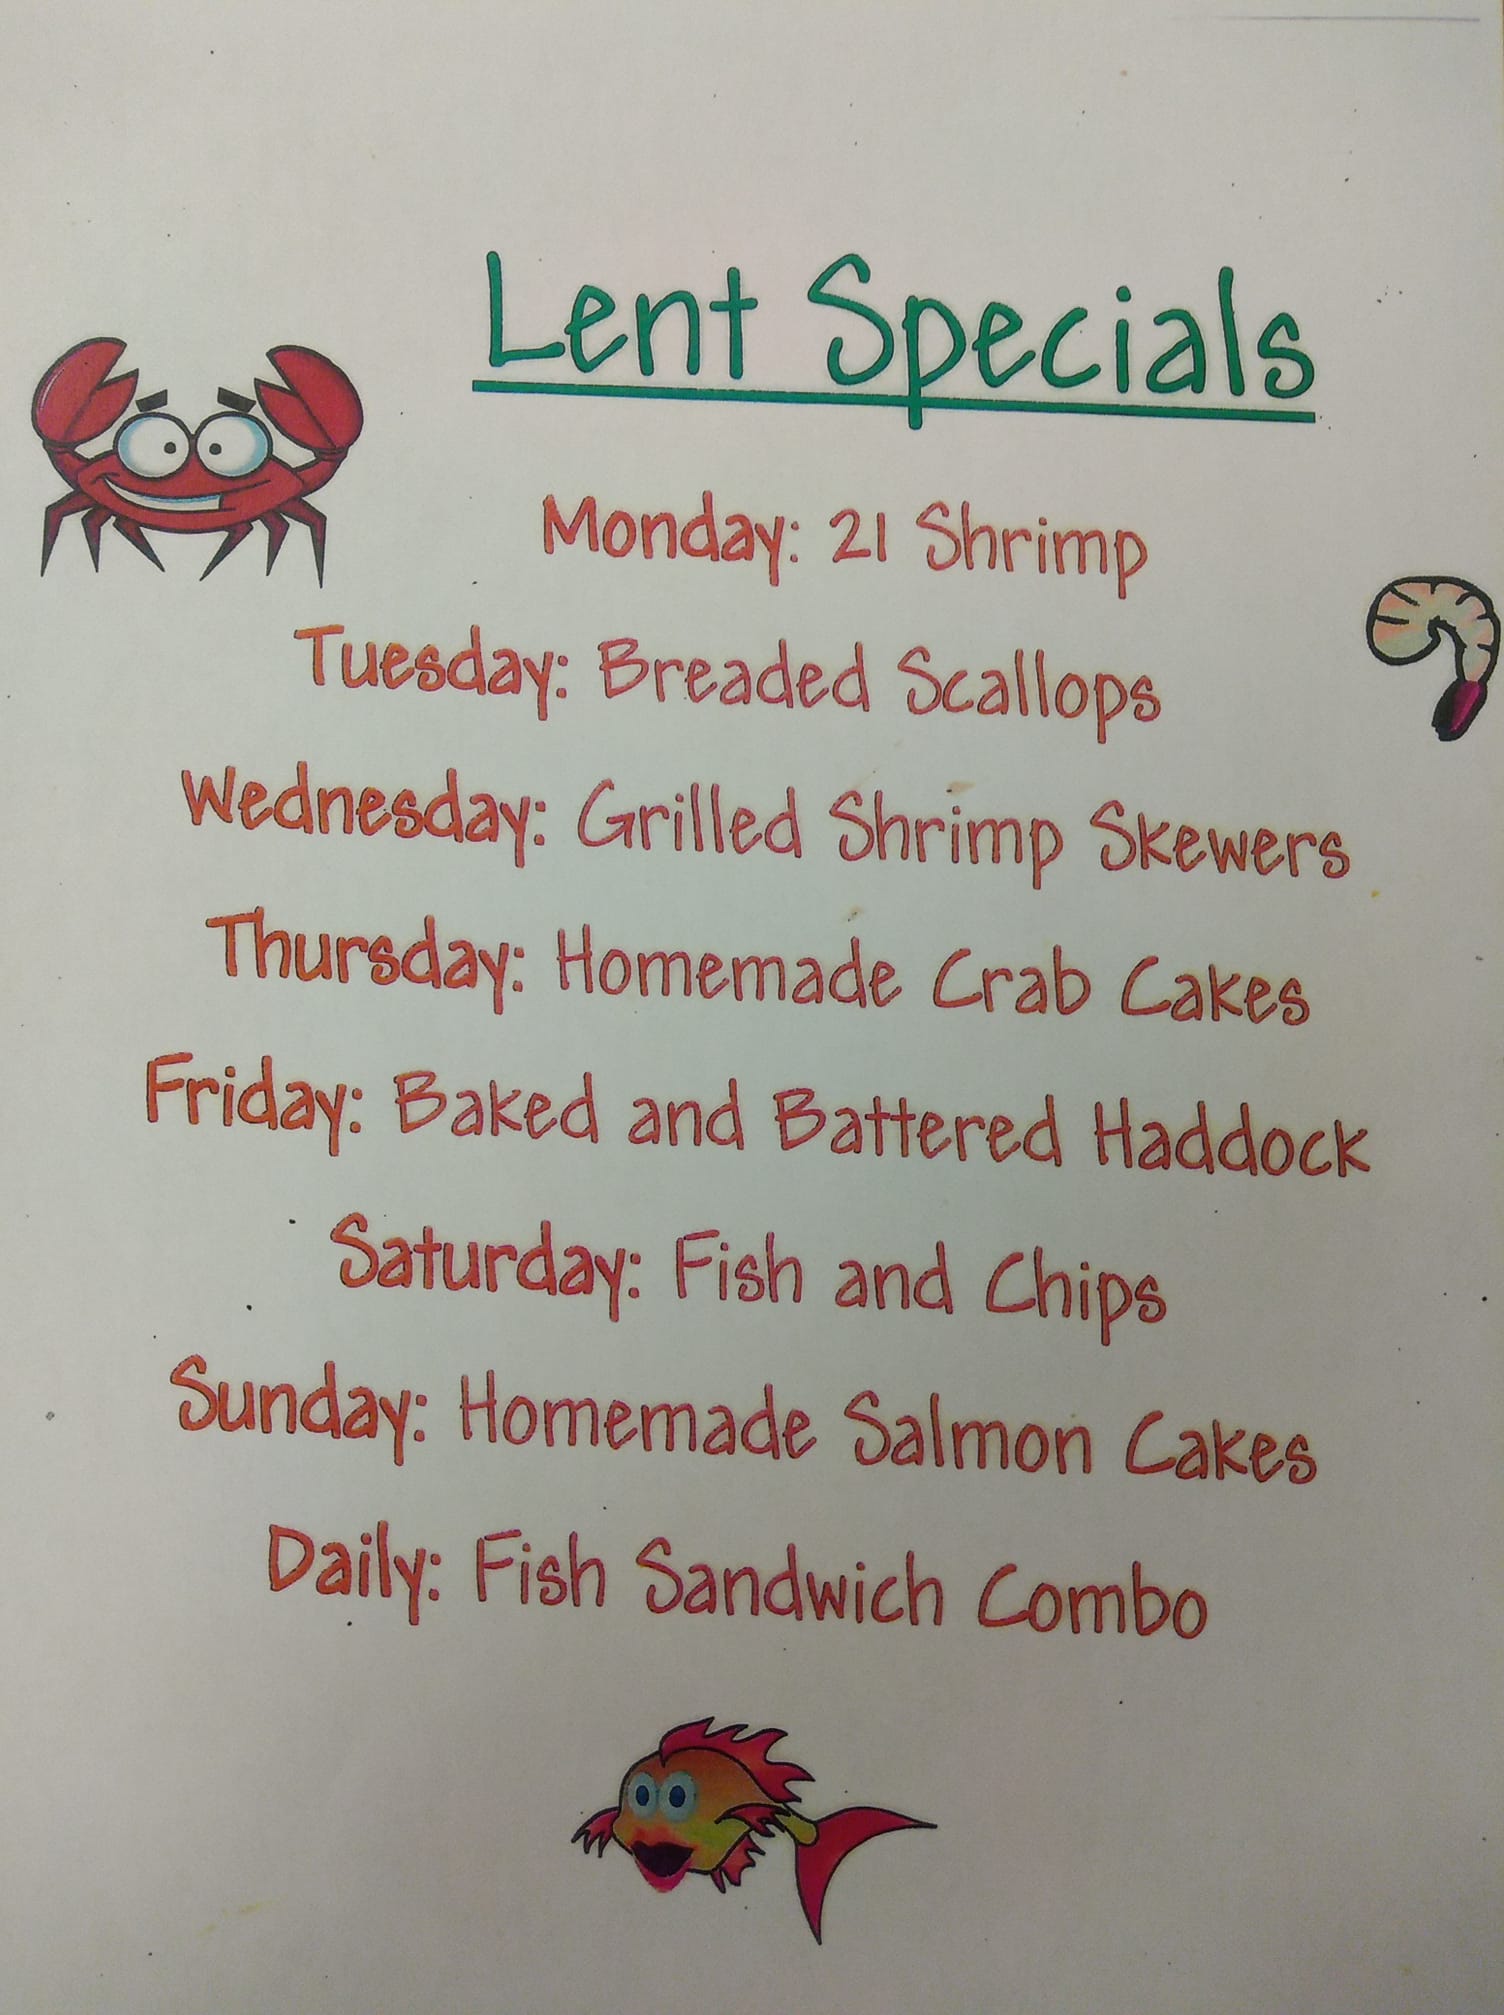 Lent Specials
Monday: 21 Shrimp
Tuesday: Breaded Scallops
Wednesday: Grilled Shrimp Skewers
Thursday: Homemade Crab Cakes
Friday: Baked and Battered Haddock
Saturday: Fish and Chips
Sunday: Homemade Salmon Cakes
Daily: Fish Sandwich Combo